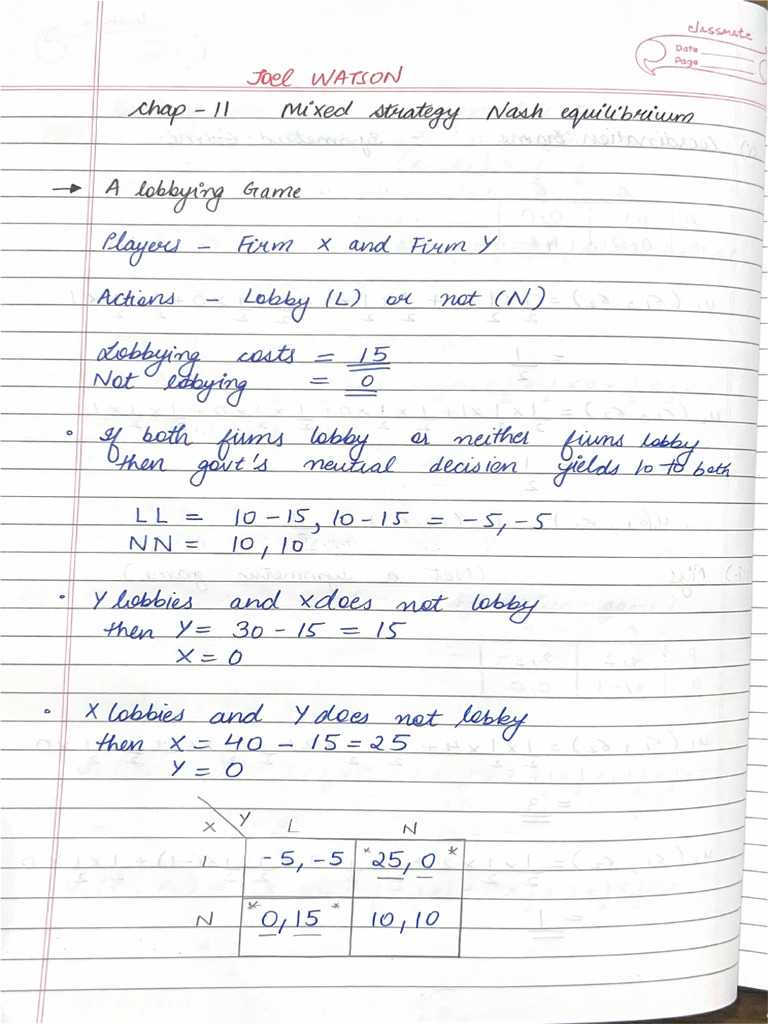 classmate
Date
Page
Joel WATSON
Chap - 11 Mixed strategy Nash equilibrium
→ A lobbying Game
Players - Firm X and Firm Y
Actions - Lobby (L) or not (N)
Lobbying costs = 15
Not lobying = 0
• If both firms lobby or neither firms lobby
then govt's neutral decision yields 10 to both
LL = 10-15, 10-15 = -5, -5
NN = 10, 10
• Y lobbies and X does not lobby
then Y = 30 - 15 = 15
X = 0
• X lobbies and Y does not lobby
then X = 40 - 15 = 25
Y = 0
X \ Y L N
L -5, -5 *25, 0*
N *0, 15* 10, 10